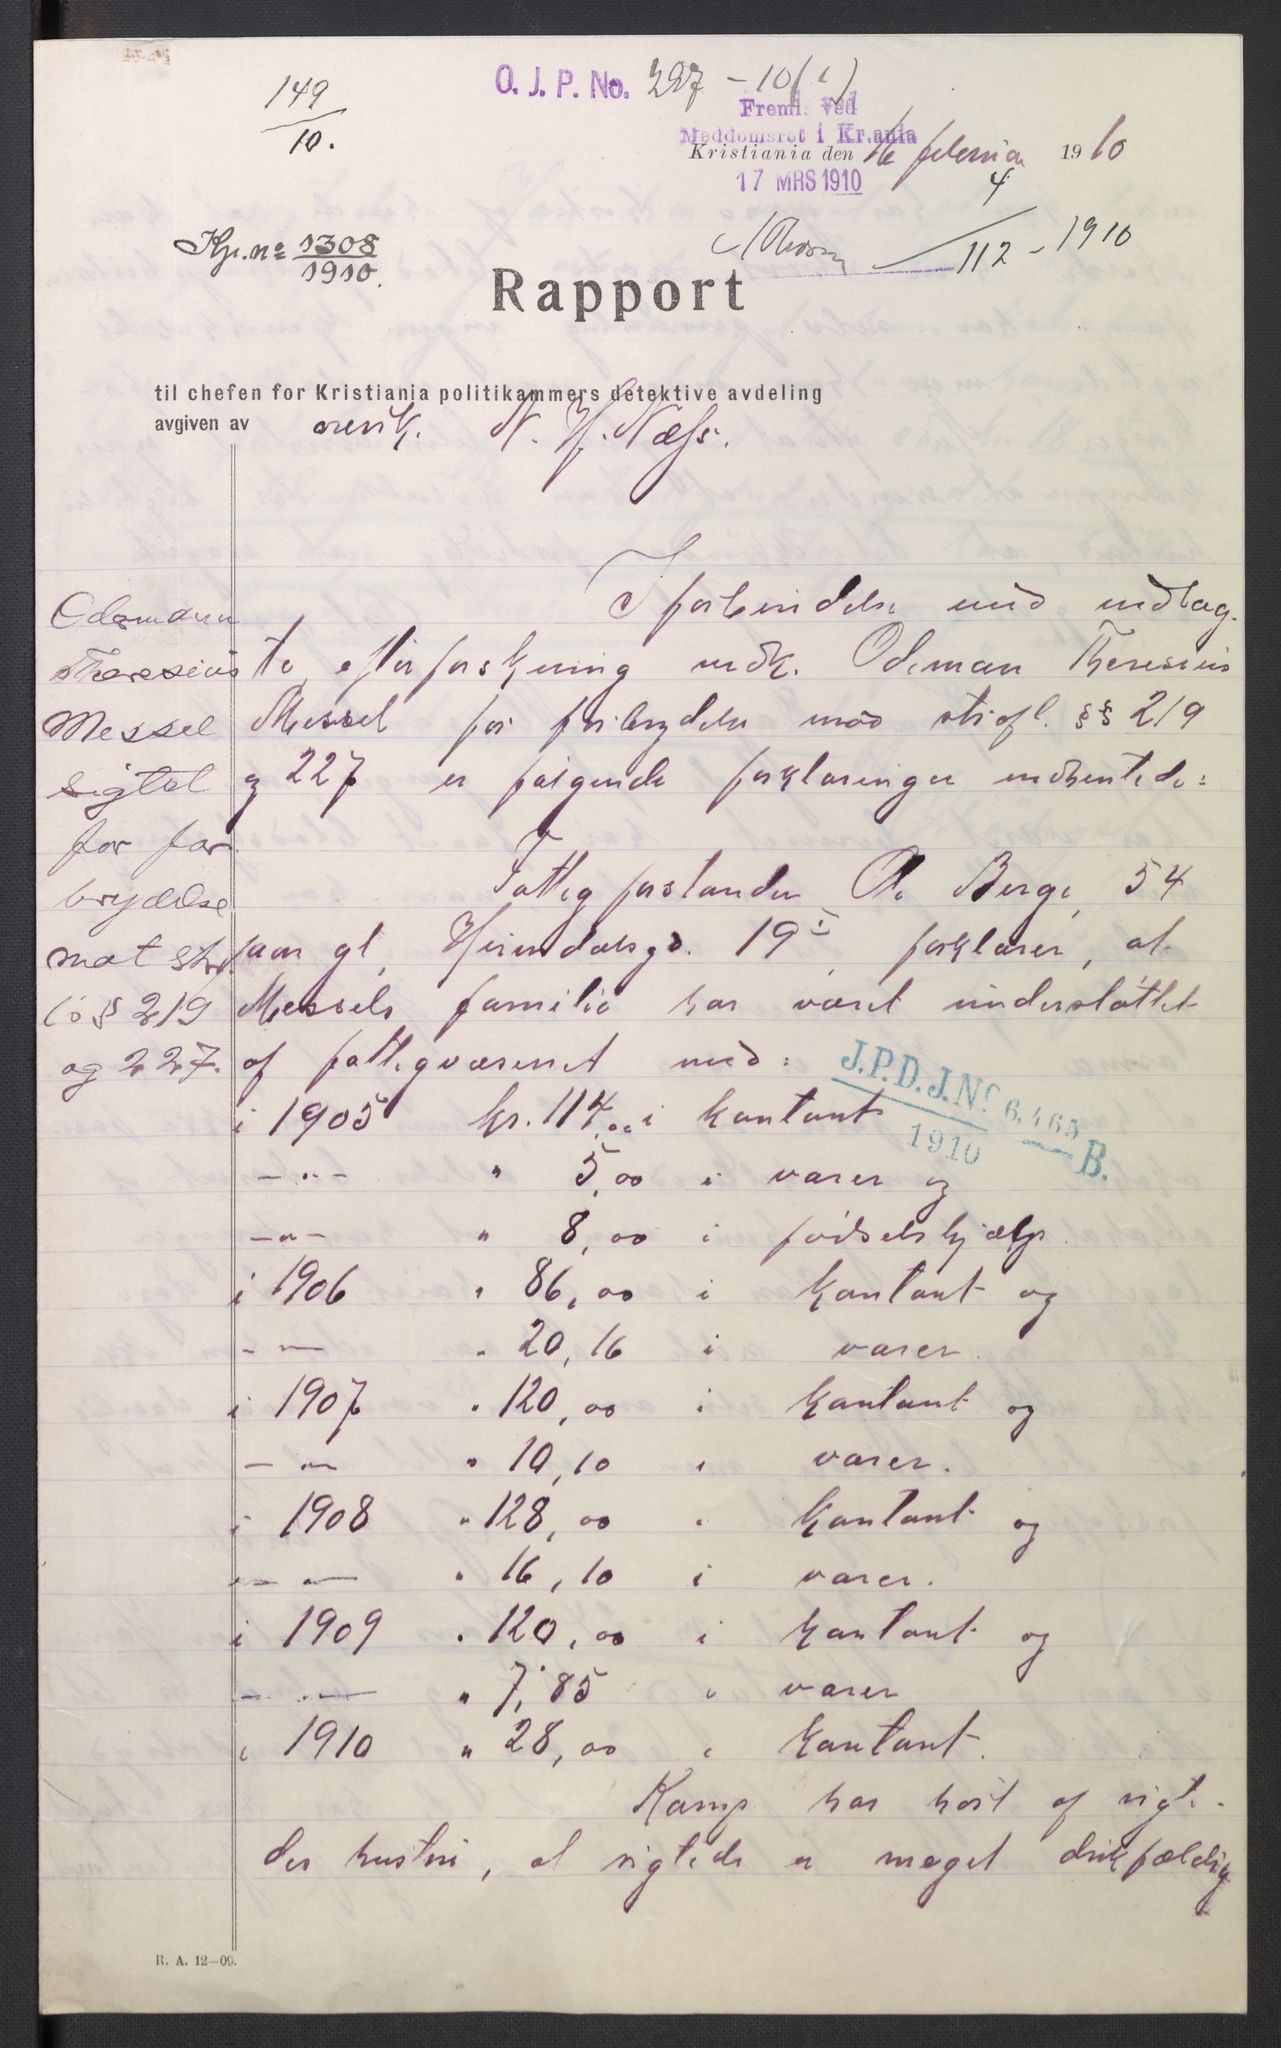 149
10.
O. J. P. No. 327 – 10 (1)
Freml. ved
Meddomsret i Kr.ania
Kristiania den 16 februar 1910
17 MRS 1910
4
112 - 1910
Kp. no 1308
1910.
Rapport
til chefen for Kristiania politikammers detektive avdeling
avgiven av N. H. Næss.
Odemann
Theresius
Messel
sigtet
for for
brydelse
mot strf
l.s § 219
og 227.
I forbindelse med indtag-
te efterforskning mdk. Odeman Theresius
Messel for forbrydelse mod strfl. §§ 219
og 227 er følgende forklaringer indhentede:
Fattigforstander Ole Berge, 54
aar gl, Heimdalsgd. 19 I, forklarer, at
Messels familie har været understøttet
af fattigvæsenet med:
J.P.D.J.No 6,465 B.
1910
i 1905 kr. 114,00 i kontant
– " – " 5,00 i varer og
– " – " 8,00 i fødselshjælp.
i 1906 " 86,00 i kontant og
– " – " 20,16 i varer.
i 1907 " 120,00 i kontant og
– " – " 10,10 i varer.
i 1908 " 128,00 i kontant og
– " – " 16,10 i varer.
i 1909 " 120,00 i kontant og
– " – " 7,85 i varer
i 1910 " 28,00 i kontant.
Komp har hørt af sigte-
des hustru, at sigtede er meget drikfældig
R. A. 12—09.